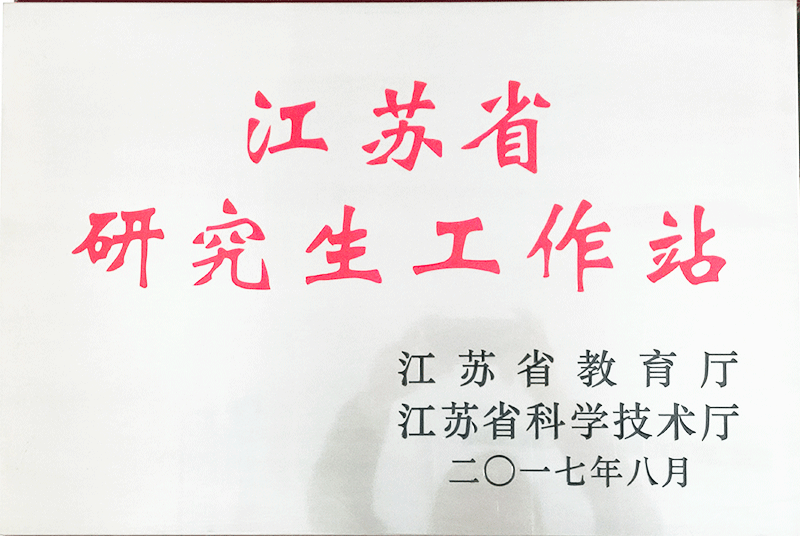 江苏省
研究生工作站
江苏省教育厅
江苏省科学技术厅
二〇一七年八月